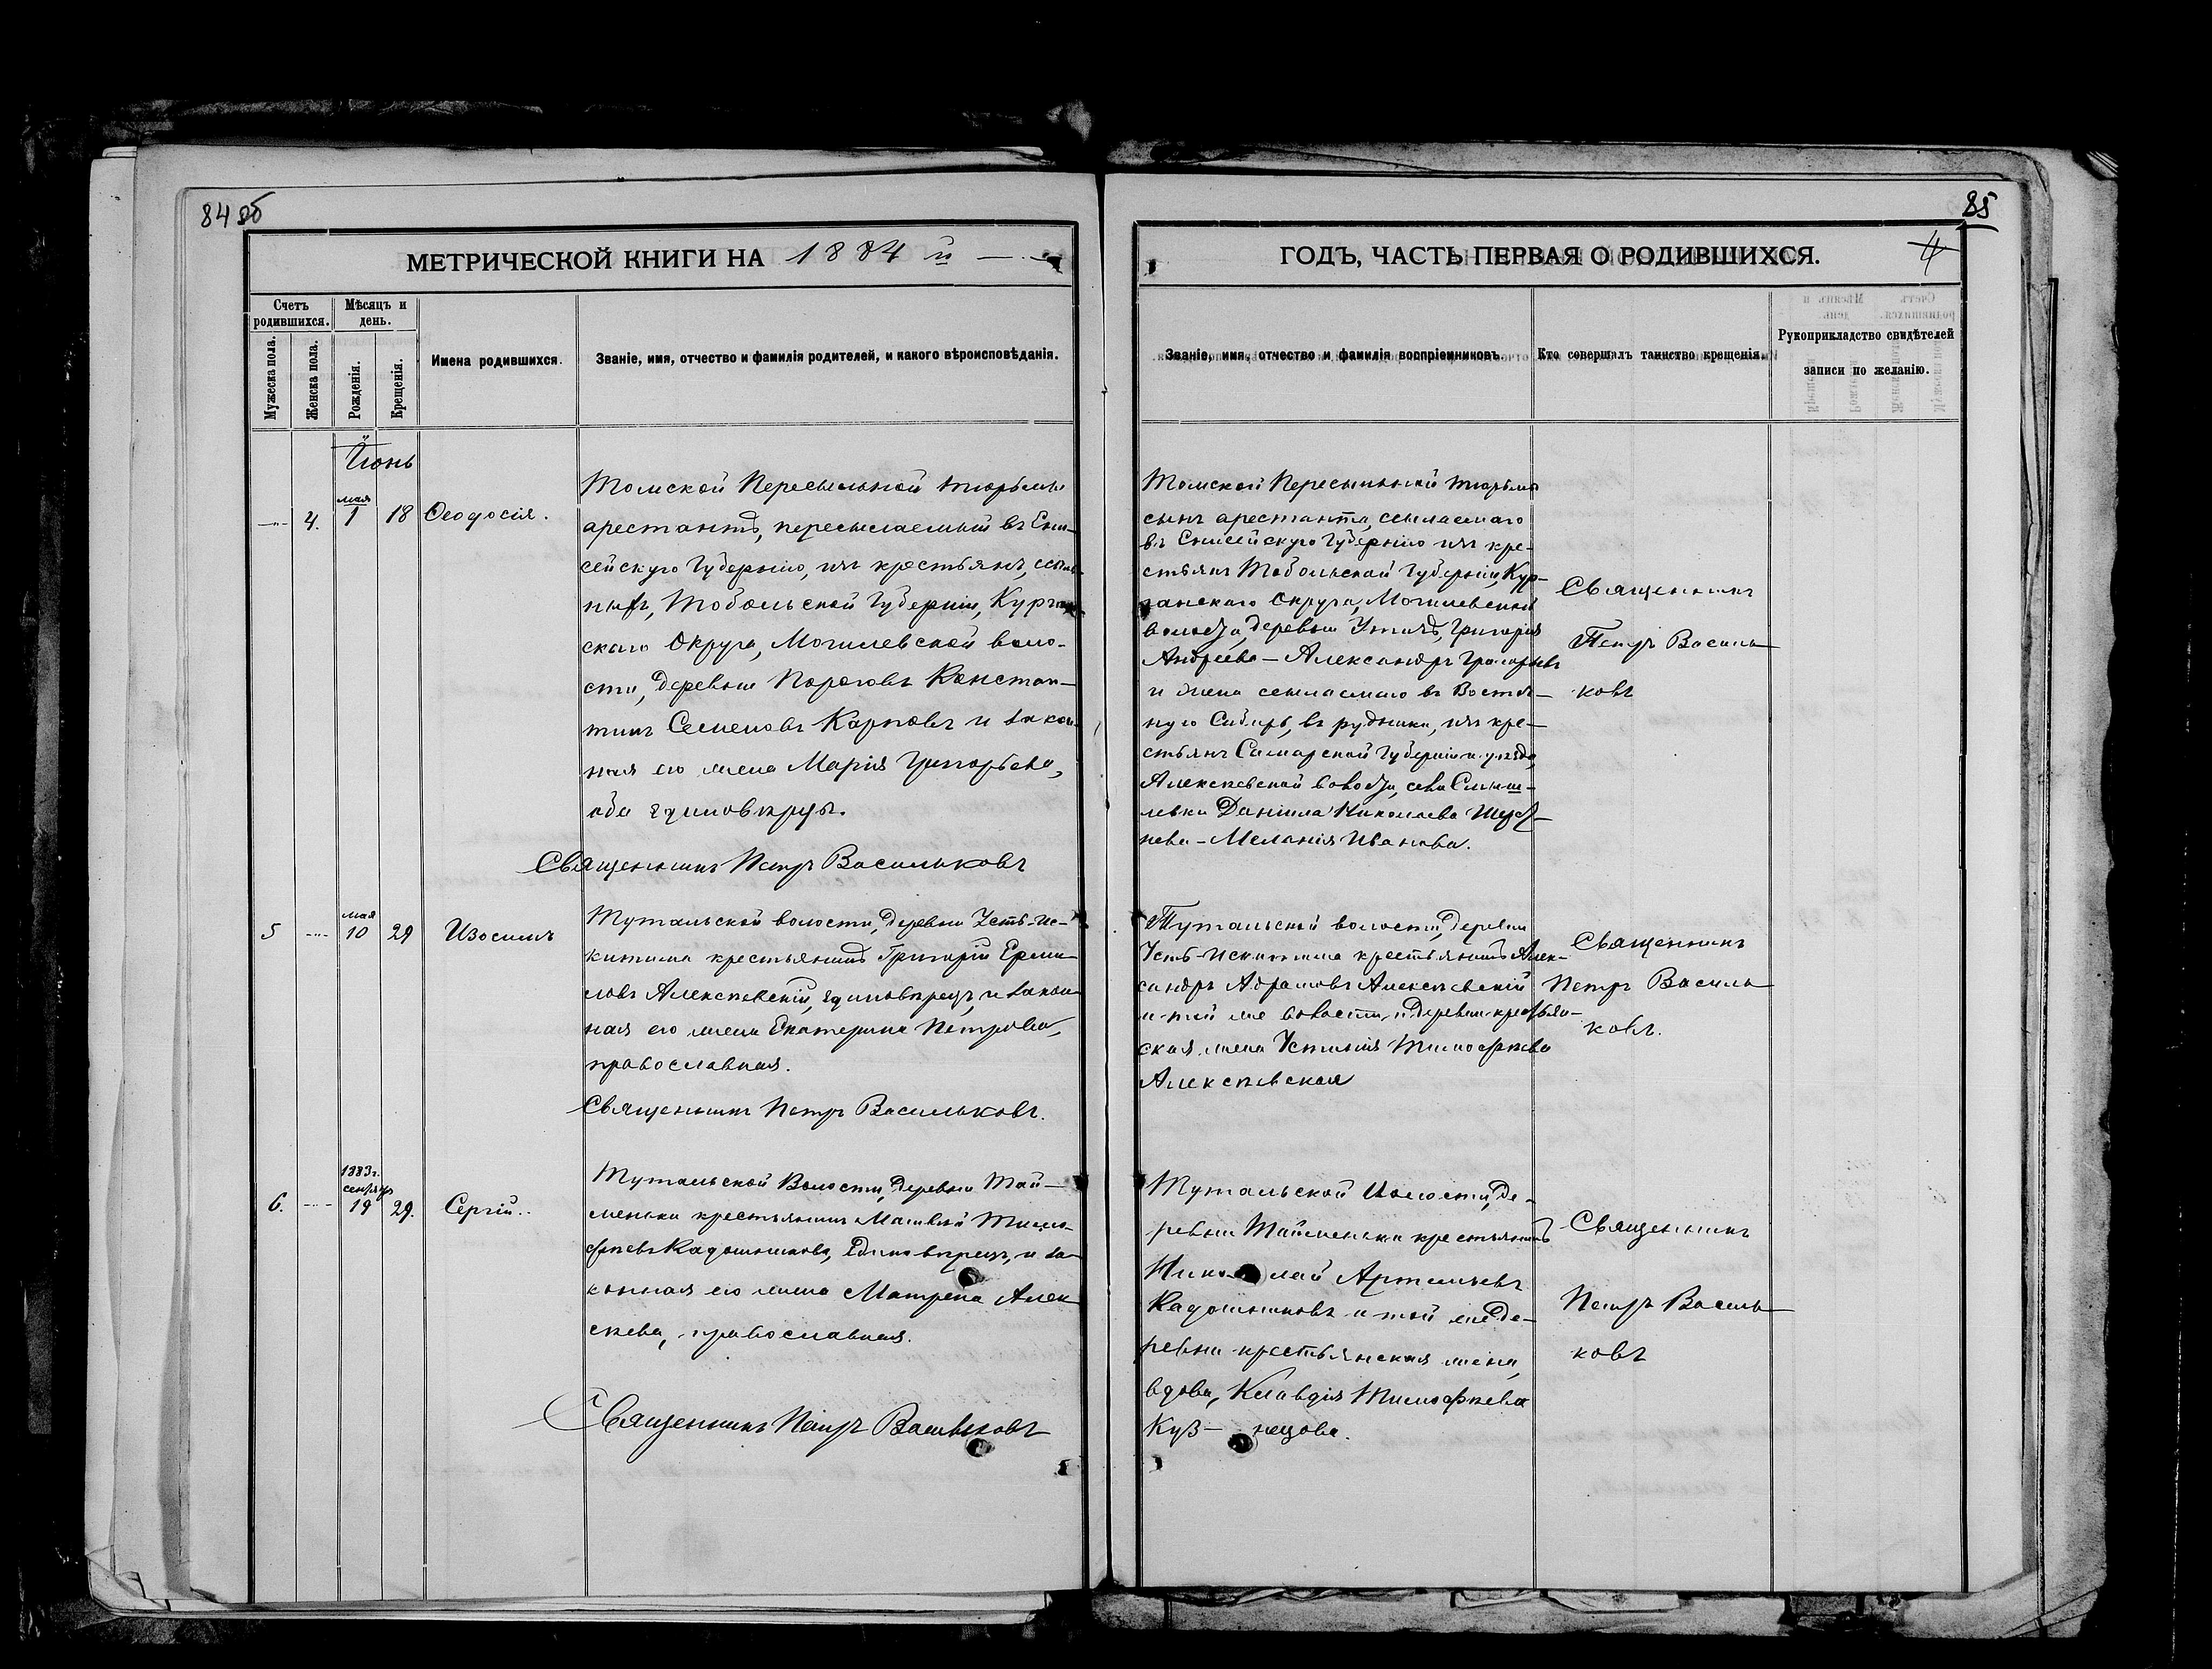 84 об
МЕТРИЧЕСКОЙ КНИГИ НА 1884 й
Счетъ родившихся.
Мѣсяцъ и день.
Мужеска пола.
Женска пола.
Рожденія.
Крещенія.
Имена родившихся.
Званіе, имя, отчество и фамилія родителей, и какого вѣроисповѣданія.
Іюнь
4.
мая
1
18
Ѳеодосія.
Томской Пересыльной тюрьмы
арестантъ, пересылаемый въ Ени-
сейскую Губернію, изъ крестьянъ, ссыль-
ныхъ, Тобольской Губерніи, Курган-
скаго Округа, Могилевской воло-
сти, деревни Пороговъ Констан-
тинъ Семеновъ Карповъ и закон-
ная его жена Марія Григорьева,
оба единовѣрцы.
Священникъ Петръ Васильковъ
5
мая
10
29
Изосимъ
Тутальской волости, деревни Усть-Ис-
китима крестьянинъ Григорій Ермо-
ловъ Алексѣевскій, единовѣрецъ, и закон-
ная его жена Екатерина Петрова,
православная.
Священникъ Петръ Васильковъ.
6.
1883г.
сентября
19
29.
Сергій.
Тутальской Волости, деревни Тай-
менки крестьянинъ Матвѣй Тимо-
фѣевъ Кадошниковъ, единовѣрецъ, и за-
конная его жена Матрена Алек-
сѣева, православная.
Священникъ Петръ Васильковъ
85
ГОДЪ, ЧАСТЬ ПЕРВАЯ О РОДИВШИХСЯ.
4
Званіе, имя, отчество и фамилія воспріемниковъ.
Кто совершалъ таинство крещенія.
Рукоприкладство свидѣтелей
записи по желанію.
Томской Пересыльной тюрьмы
сынъ арестанта, ссылаемаго
въ Енисейскую Губернію изъ кре-
стьянъ Тобольской Губерніи, Кур-
ганскаго Округа, Могилевской
волости, деревни Григорія
Андреева - Александръ Григорьевъ
и жена ссылаемаго въ Восточ-
ную Сибирь, въ рудники, изъ кре-
стьянъ Самарской Губерніи и уѣзда,
Алексѣевской волости, села Смыш-
ляевки Даніила Николаева
нева - Меланія Иванова.
Священникъ
Петръ Василь-
ковъ
Тутальской волости, деревни
Усть-Искитима крестьянинъ Алек-
сандръ Абрамовъ Алексѣевскій
и той же волости и деревни крестьян-
ская жена Устинія Тимофѣева
Алексѣевская
Священникъ
Петръ Василь
ковъ.
Тутальской Волости, де-
ревни Тайменки крестьянинъ
Николай Артемьевъ
Кадошниковъ и той же де-
ревни крестьянская жена,
вдова, Клавдія Тимофѣева
Куз- нецова.
Священникъ
Петръ Василь
ковъ